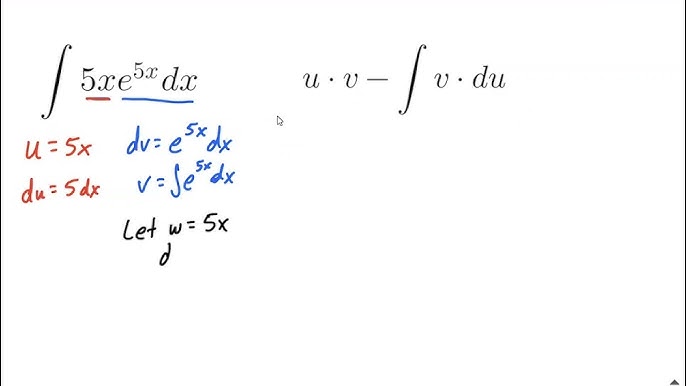 ∫ 5xe^{5x} dx
u · v − ∫ v · du
u = 5x
dv = e^{5x} dx
du = 5 dx
v = ∫ e^{5x} dx
Let w = 5x
d